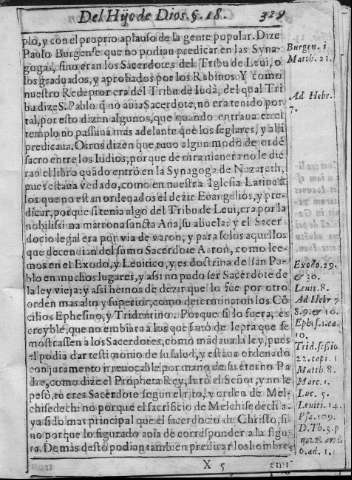 Del Hijo de Dios. §. 18.
329
plo, y con el proprio aplauso de la gente popular. Dize
Paulo Burgense que no podian predicar en las Syna-
gogas, sino eran los Sacerdotes del Tribu de Leui, o
los graduados, y aprobados por los Rabinos. Y como
nuestro Redeptor era del Tribu de Iudà, del qual Tri
ba dize S. Pablo q̃ no auia Sacerdote, no era tenido por
tal, por esto dizen algunos, que quando entraua en el
templo no passaua mas adelante que los seglares, y alli
predicaua. Otros dizen que tuuo algun modo de ordẽ
sacro entre los Iudios, porque de otra manera no le die
ran el libro quãdo entrò en la Synagoga de Nazareth,
pues estaua vedado, como en nuestra Iglesia Latina à
los que no estan ordenados el dezir Euangelios, y pre
dicar, porque si tenia algo del Tribu de Leui, era por la
nobilissima matrona santa Ana, su abuela: y el Sacer
docio legal era por via de varon, y para solos aquellos
que decendian del sumo Sacerdote Aron, como lee-
mos en el Exodo, y Leuitico, y es doctrina de san Pa-
blo en muchos lugares, y assi no pudo ser Sacerdote de
la ley vieja: y assi hemos de dezir que lo fue por otro
orden mas alto y superior, como determinaron los Cõ
cilios Ephesino, y Tridentino. Porque si lo fuera, es
creyble, que no embiara à los que sanò de lepra que se
mostrassen à los Sacerdotes, como mãdaua la ley, pues
el podia dar testimonio de su salud, y estaua ordenado
con juramento irreuocable por mano de su eterno Pa
dre, como dize el Propheta Rey, Iurò el Señor, y no le
pesò, tu eres Sacerdote segun el rito, y orden de Mel-
chisedech: no porque el sacrificio de Melchisedech a-
ya sido mas principal que el sacerdocio de Christo, si
no porque lo figurado auia de corresponder a la figu-
ra. Demàs desto podian tambien predicar los hombres
X 5
Burgen. i
Matth. 21.
Ad Hebr.
7.
Exodo. 29.
& 30.
Leuit. 8.
Ad Hebr. 7
8. 9. & 10.
Ephes. i. ca
10.
Trid. sessio
22. capi. 1
Matth. 8.
Marc. 1.
Luc. 5.
Leuiti. 14.
Psa. 109.
D. Th. 3. p
6. ad. 1.